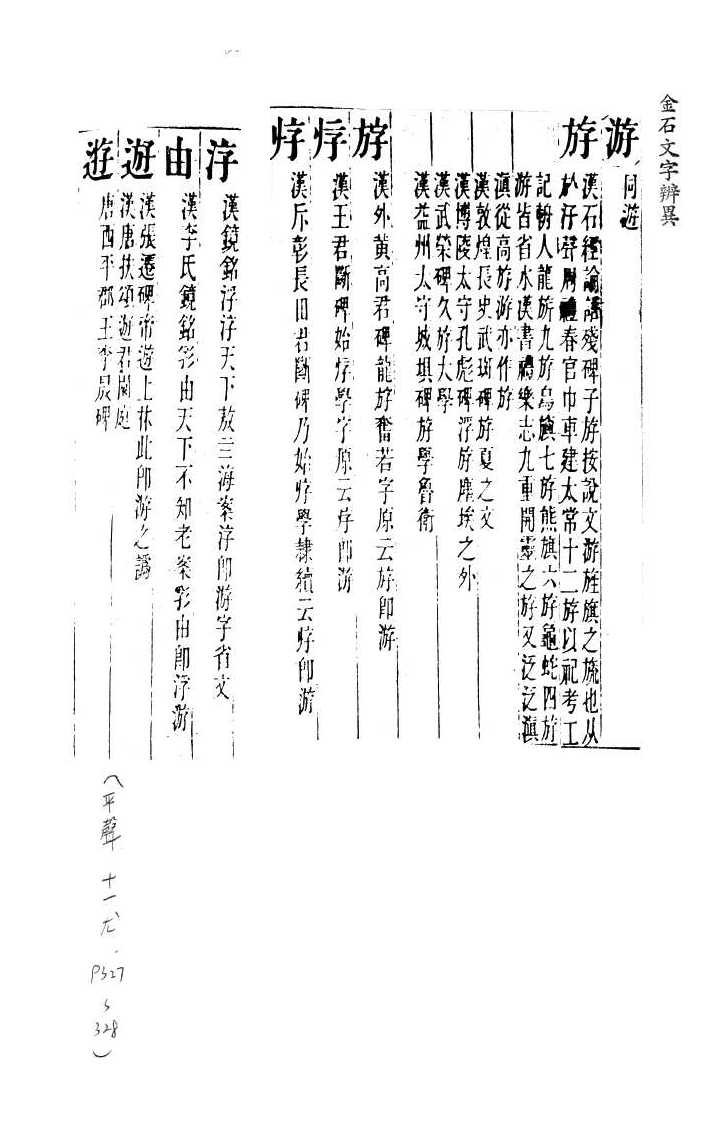 金石文字辨異
游
同遊
斿
漢石經論語殘碑子斿按說文游旌旗之旒也从
㫃汓聲周禮春官巾車建太常十二斿以祀考工
記輈人龍旂九斿鳥旟七斿熊旗六斿龜蛇四斿
游皆省水漢書禮樂志九重開靈之斿又泛泛滇
滇從高斿游亦作斿
漢敦煌長史武斑碑斿夏之文
漢博陵太守孔彪碑浮斿塵埃之外
漢武榮碑久斿大學
漢益州太守城垻碑斿學魯衛
漢外黃高君碑龍斿奮若字原云斿即游
漢王君斷碑始㳺學字原云即游
漢斥彰長田君斷碑乃始學隸續云即游
漢鏡銘浮浮天下敖三海案浮即游字省文
由
漢李氏鏡銘由天下不知老案由即浮游
遊
漢張遷碑帝遊上林此即游之譌
漢唐扶頌遊君閫庭
唐西平郡王李晟碑
(平聲 十一尤、
P327
~
328)